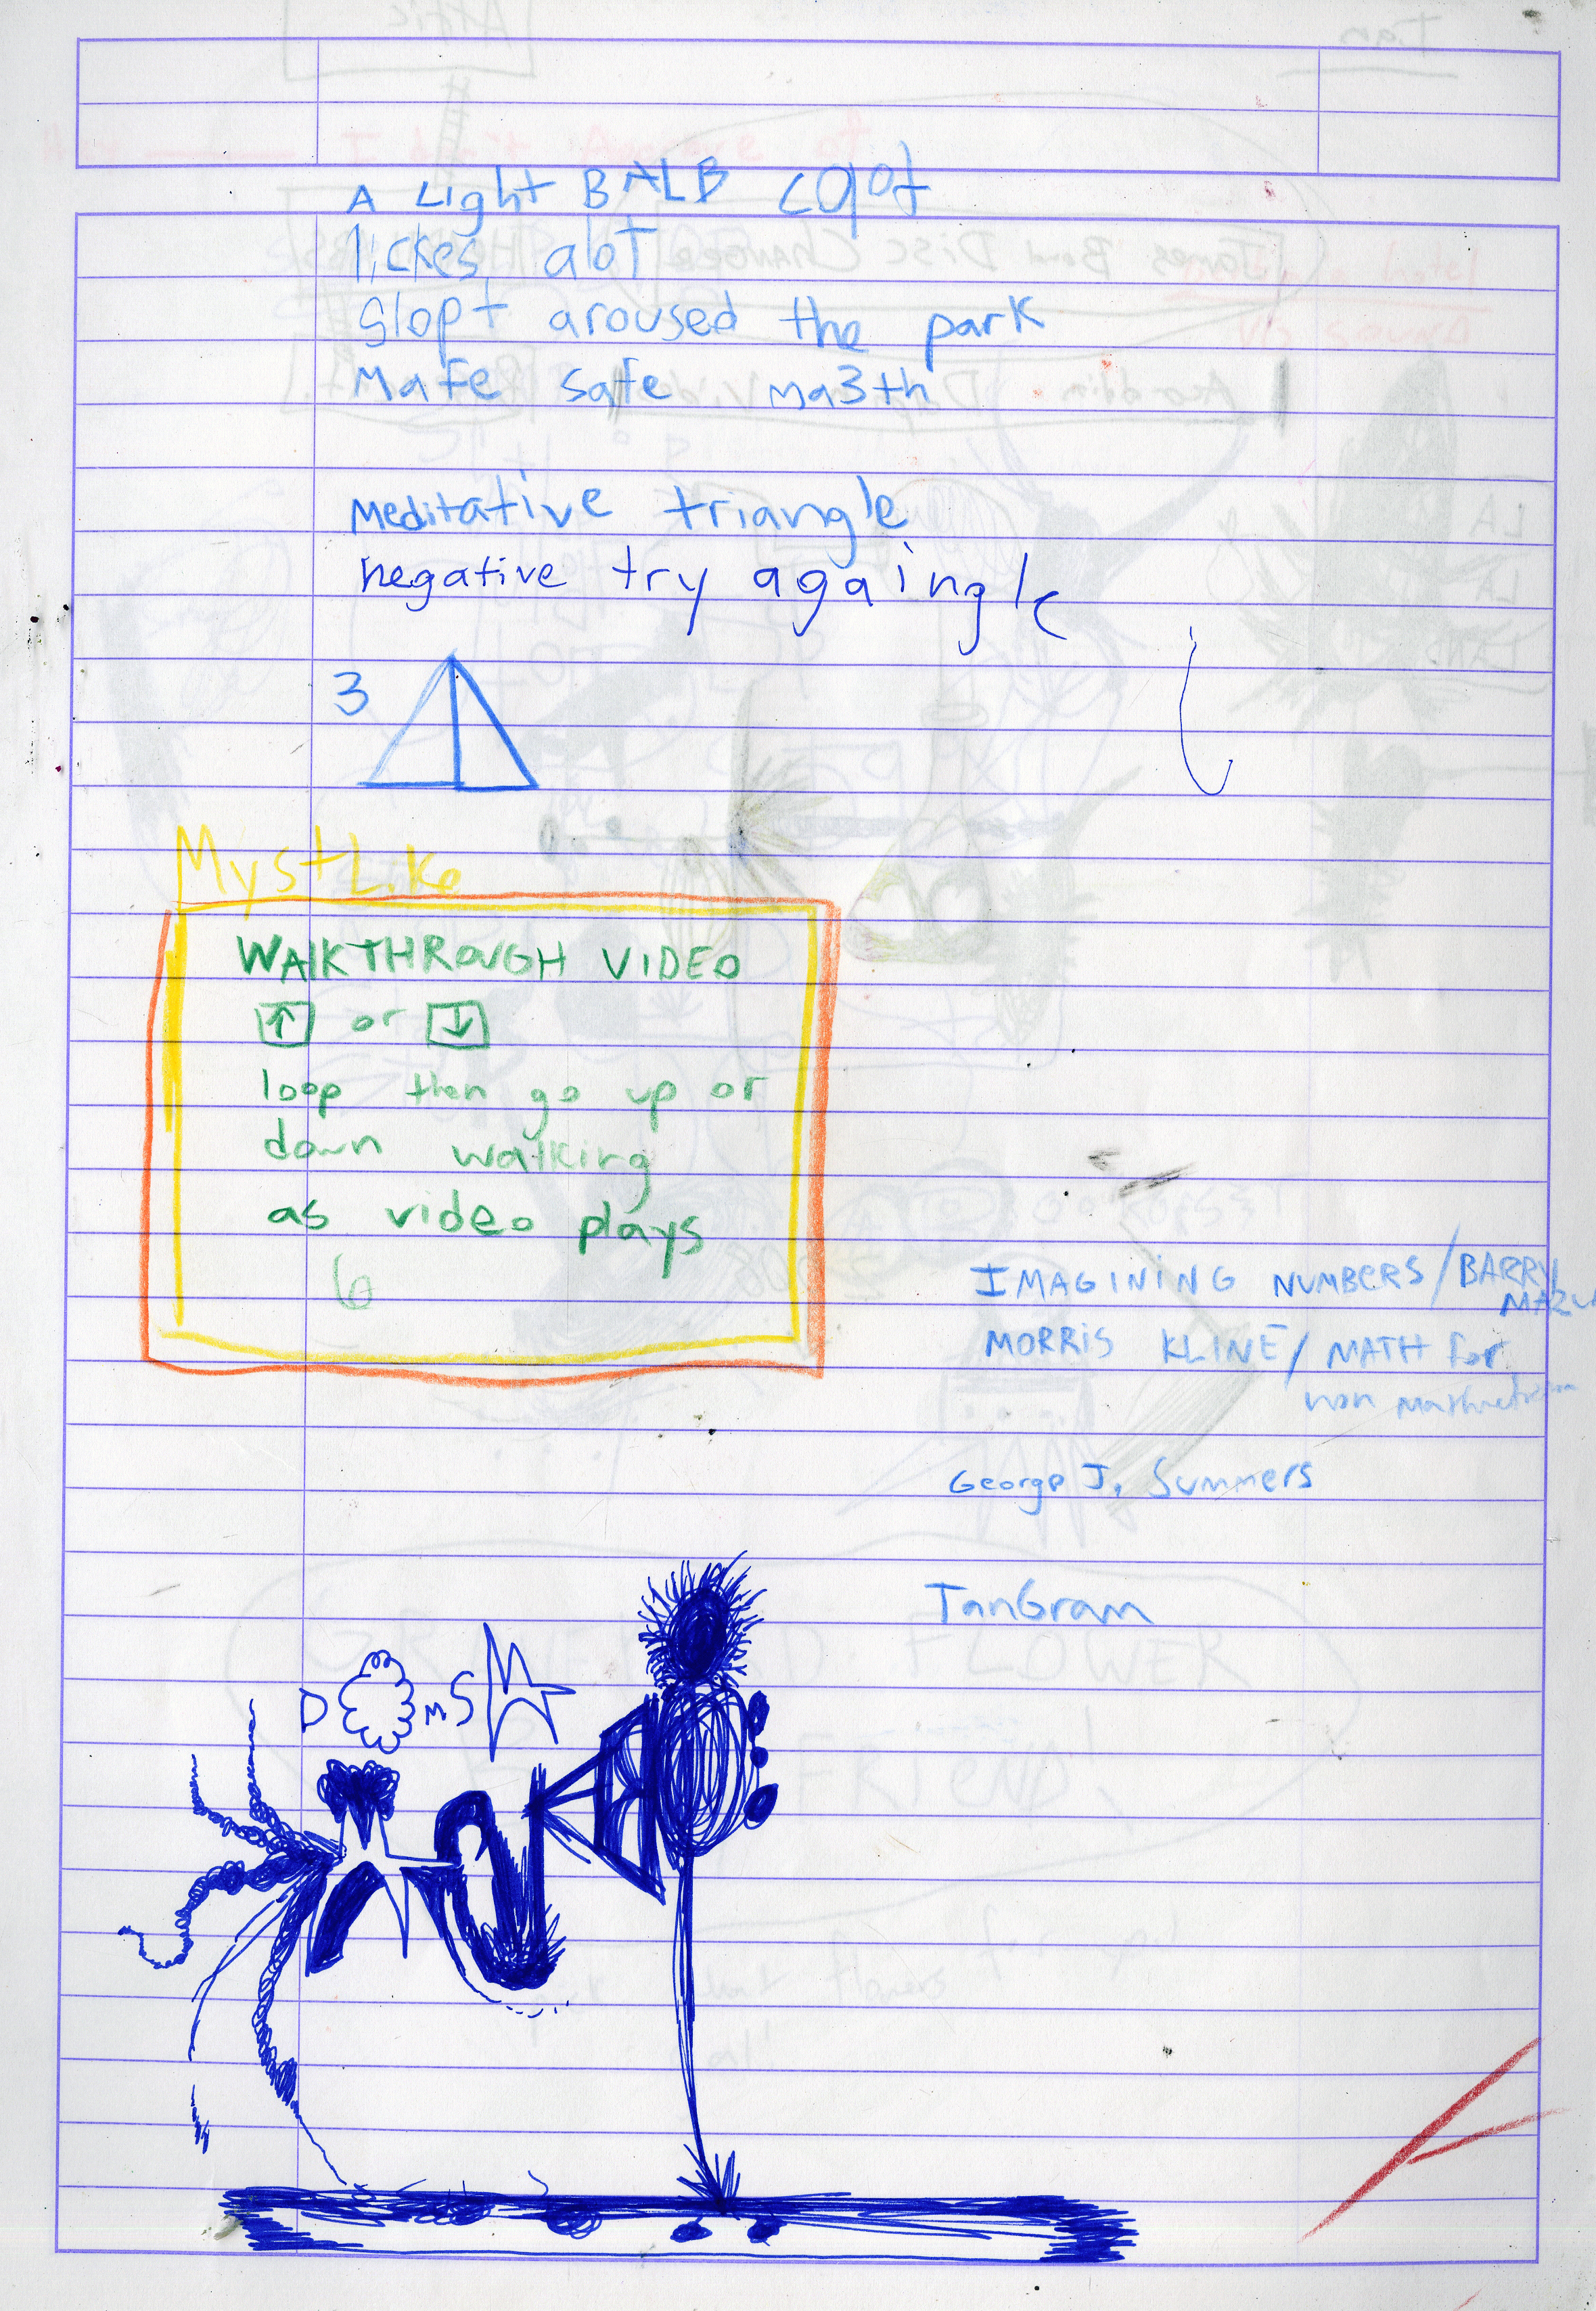 A Light BALB
lickes alot
Slopt aroused the park
Mafe safe ma3th
Meditative triangle
negative try againgle
3
MystLike
WALKTHROUGH VIDEO
↑ or ↓
loop then go up or
down walking
as video plays
IMAGINING NUMBERS / BARRY
MAZU
MORRIS KLINE / MATH for
non
George J. Summers
TanGram